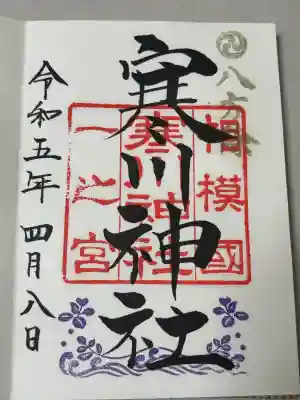 八方除
相模國
寒川神社
寒川神社
一之宮
令和五年四月八日